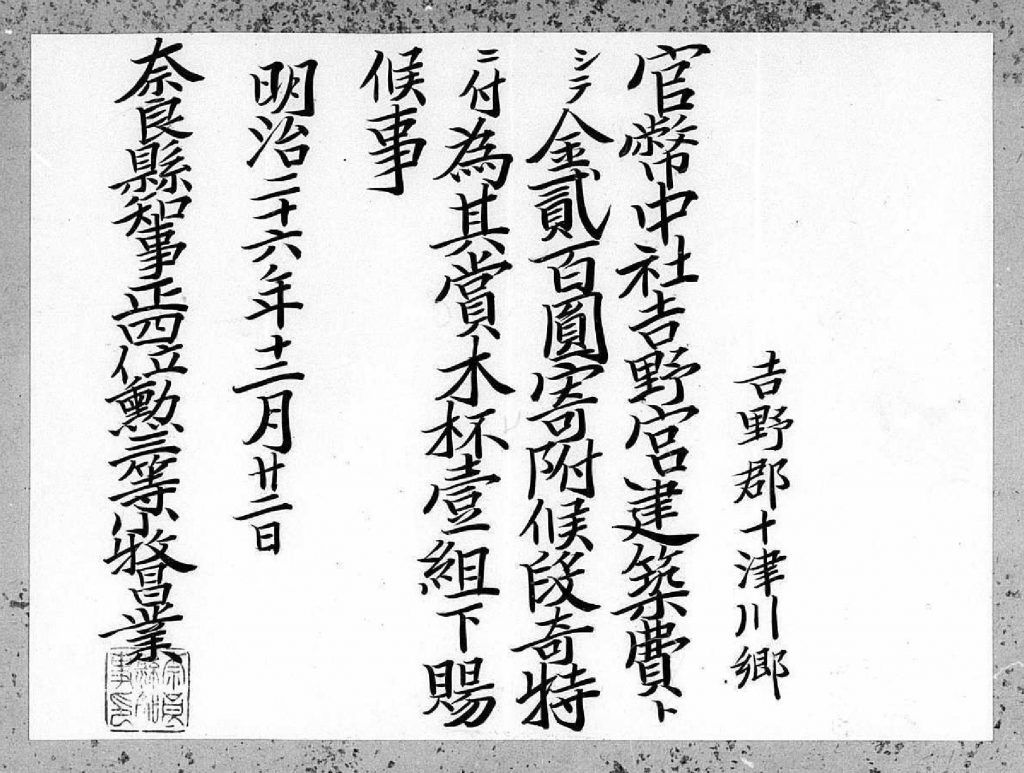 吉野郡十津川郷
官幣中社吉野宮建築費ト
シテ金貳百圓寄附候段奇特
ニ付為其賞木杯壹組下賜
候事
明治二十六年十二月廿二日
奈良縣知事正四位勲三等小牧昌業